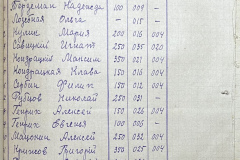 Бордеман Надежда 100 009 -
Лозовая Ольга - 015 -
Кулик Мария 200 016 004
Савицкий Игнат 250 035 020
Кондрацкий Максим 350 021 004
Кондрацкая Клава 150 015 004
Сербин Филипп 150 012 004
Рубцов Николай 250 031 -
Генрих Алексей 150 026 004
Генрих Евгения 100 005 -
Мационин Алексей 250 032 004
Крыжов Григорий 350 025 004